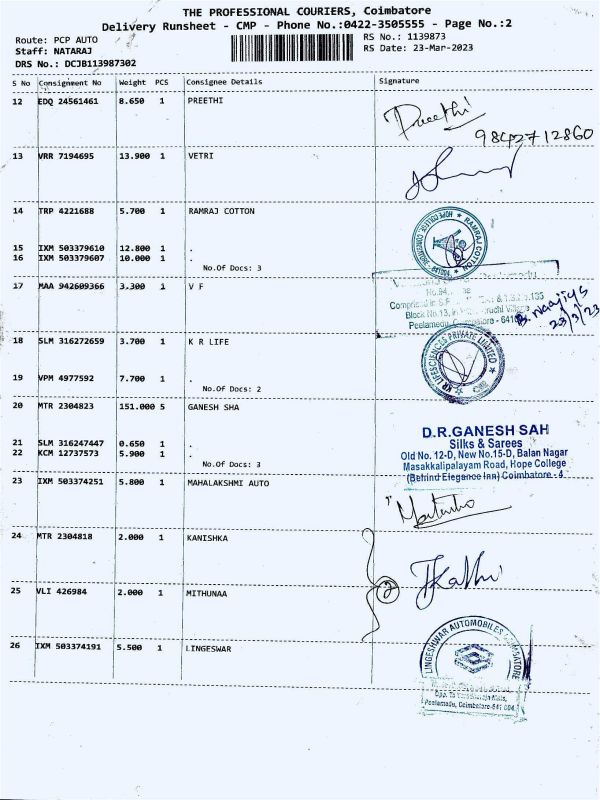 THE PROFESSIONAL COURIERS, Coimbatore
Delivery Runsheet - CMP - Phone No.:0422-3505555 - Page No.:2
Route: PCP AUTO
Staff: NATARAJ
DRS No.: DCJB113987302
RS No.: 1139873
RS Date: 23-Mar-2023
S No Consignment No Weight PCS Consignee Details Signature
12 EDQ 24561461 8.650 1 PREETHI
Preethi
9842712860
13 VRR 7194695 13.900 1 VETRI
14 TRP 4221688 5.700 1 RAMRAJ COTTON
RAMRAJ COTTON
15 IXM 503379610 12.800 1 .
16 IXM 503379607 10.000 1 .
No.Of Docs: 3
17 MAA 942609366 3.300 1 V F
No.94,
Block No.13, in
Peelamedu, Coimbatore - 641
23/3/23
18 SLM 316272659 3.700 1 K R LIFE
KR LIFESCIENCES PRIVATE LIMITED
19 VPM 4977592 7.700 1 .
No.Of Docs: 2
20 MTR 2304823 151.000 5 GANESH SHA
D.R.GANESH SAH
Silks & Sarees
Old No. 12-D, New No.15-D, Balan Nagar
Masakkalipalayam Road, Hope College
(Behind Elegance Inn) Coimbatore - 4
21 SLM 316247447 0.650 1 .
22 KCM 12737573 5.900 1 .
No.Of Docs: 3
23 IXM 503374251 5.800 1 MAHALAKSHMI AUTO
24 MTR 2304818 2.000 1 KANISHKA
2
25 VLI 426984 2.000 1 MITHUNAA
26 IXM 503374191 5.500 1 LINGESWAR
LINGESHWAR AUTOMOBILES COIMBATORE
Peelamedu, Coimbatore-641 004.